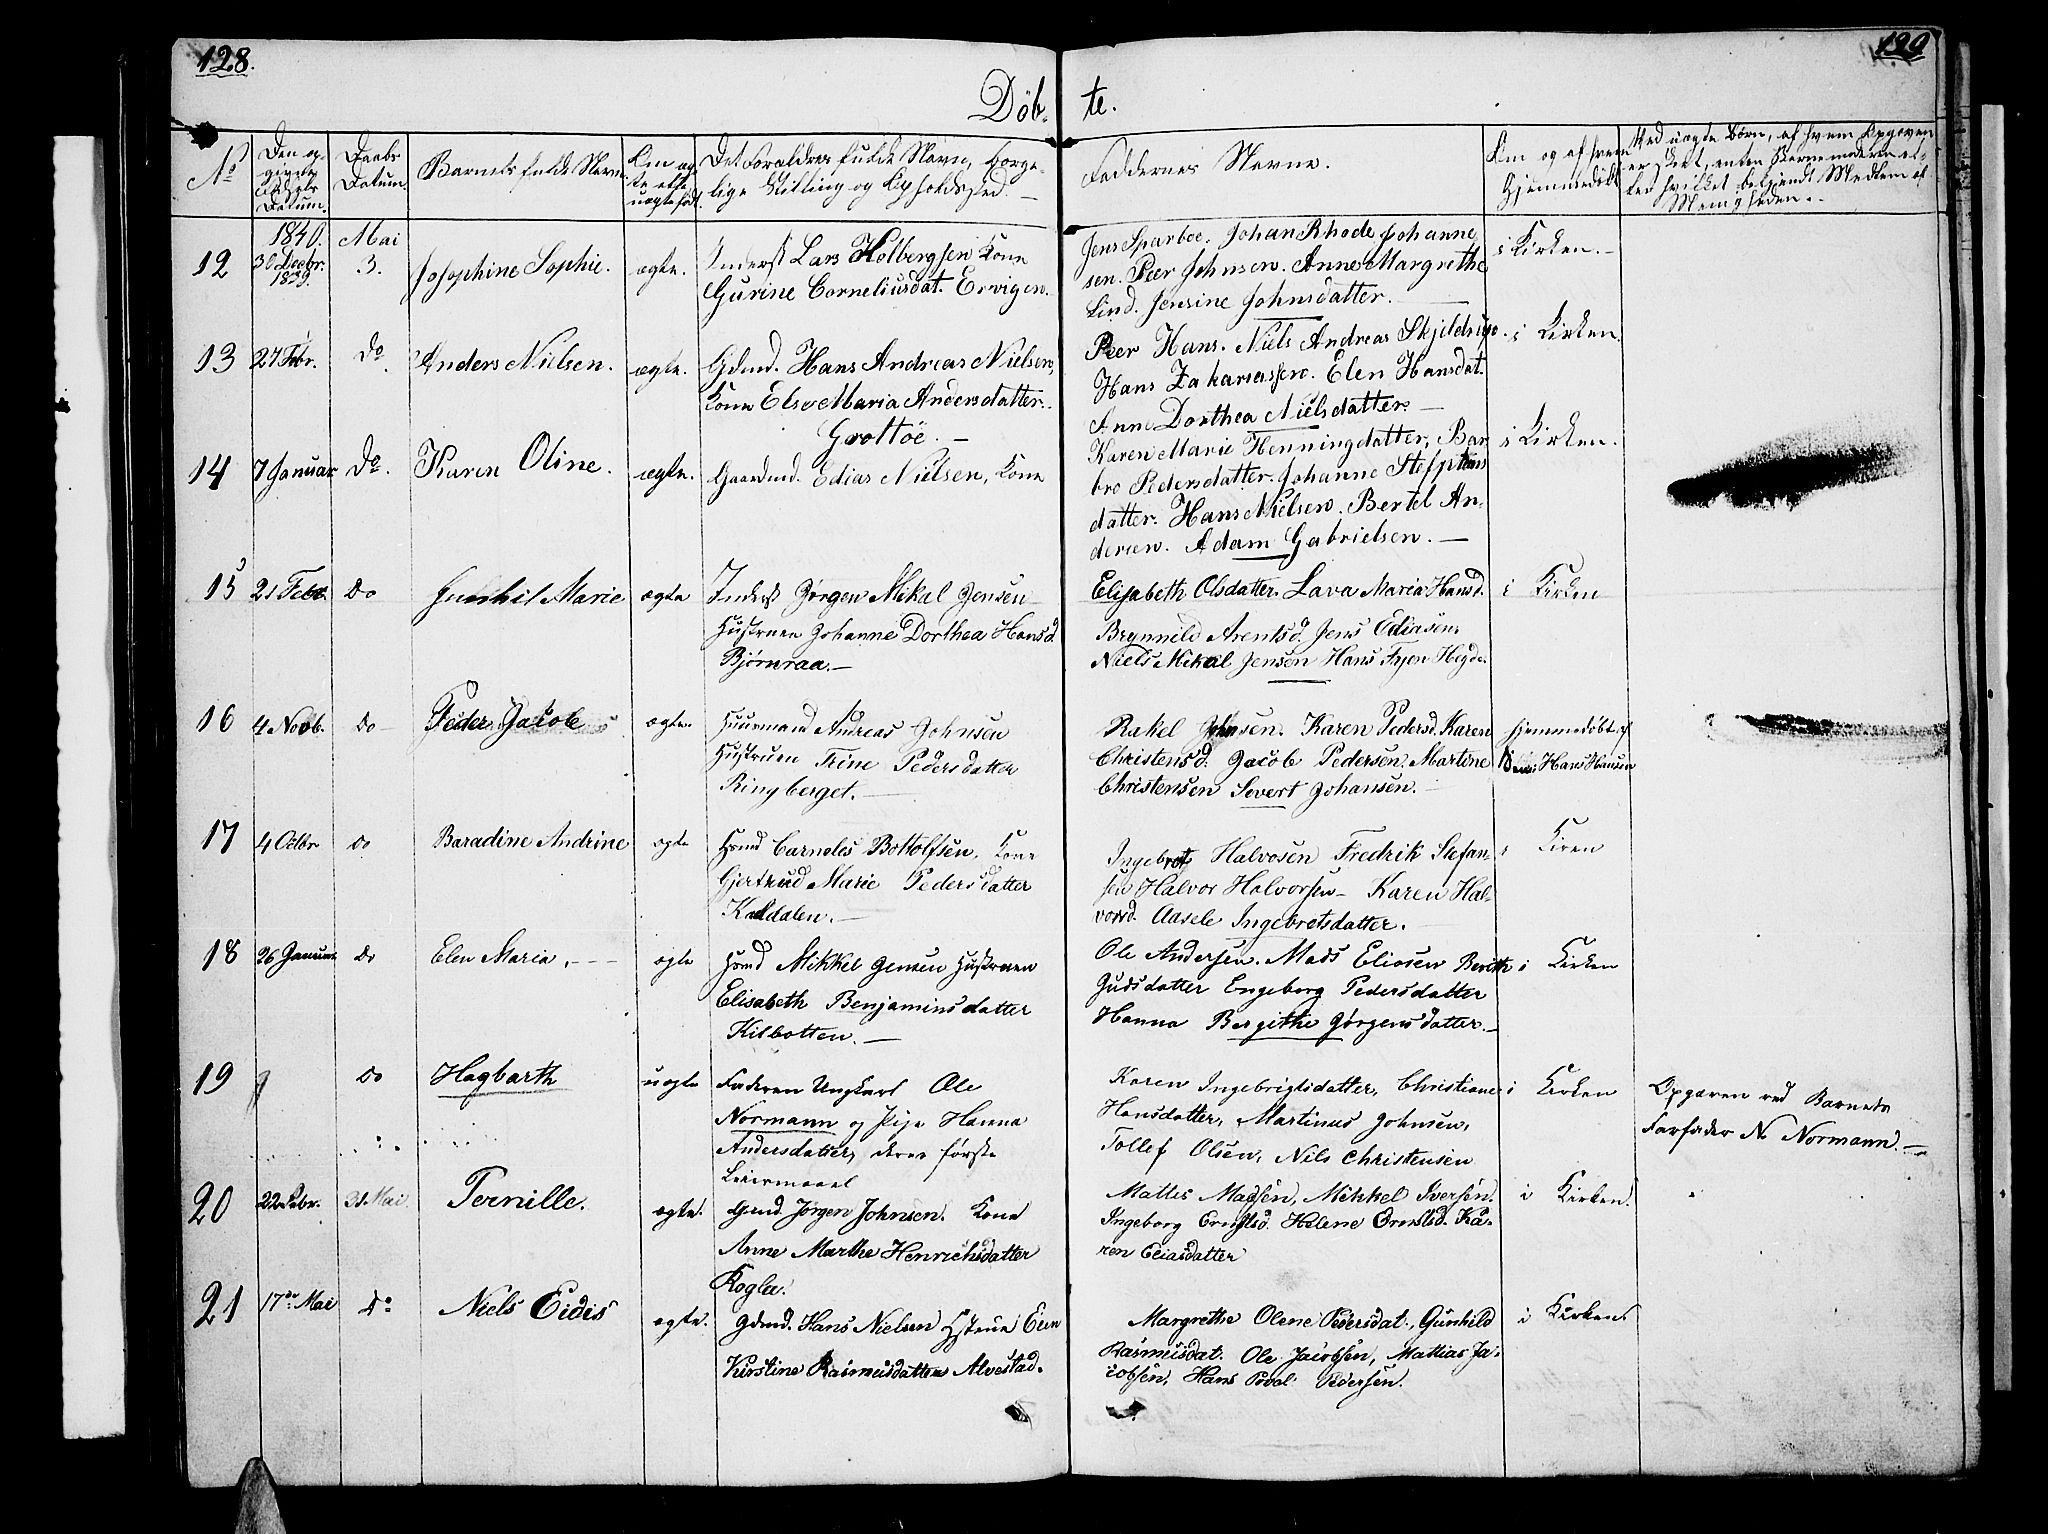 128.
129
Döb-
te.
No
Den op-
givne
Fødsels
Datum.
Daabs
Datum.
Barnets fulde Navn
Om æg-
te eller
uægtefød.
Det Forældres fulde Navn, Borge-
lige Stilling og Opholdssted.
Faddernes Navne.
Om og af hvem
Hjemmedöbt
Ved uægte Börn, af hvem Opgaven
er skeet, enten Barnemoderen el-
ler hvilket bekjendt Medlem af
Menigheden.
1840.
12 30 Decbr. 1839. Mai 3. Josephine Sophie. ægte.
Inderst Lars Holbergsen Kone
Gurine Corneliusdat. Ervigen.
Jens Sparboe. Johan Rhode Johanne-
sen. Peer Johnsen. Anne Margrethe
Lind. Jensine Johnsdatter.
i Kirken.
13 27 Febr. Do. Anders Nielsen. ægte.
Gdmd. Hans Andreas Nielsen,
Kone Else Maria Andersdatter.
Grottöe.
Peer Hans. Niels Andreas
Hans Zakariassen. Elen Hansdat.
Anne Dorthea Nielsdatter.
i Kirken
14 7 Januar Do. Karen Oline. ægte.
Gaardmd. Edias Nielsen, Kone
Karen Marie Henningdatter, Bar
bro Pedersdatter. Johanne Stephens
datter. Hans Nielsen. Bertel An-
dersen. Adam Gabrielsen.
i Kirken.
15 21 Febr. Do Gunhil Marie ægte
Inderst Jörgen Mikal Jensen
Hustruen Johanne Dorthea Hansd
Björnraa.
Elisabeth Olsdatter. Lava Maria Hansd.
Brynnild Arentsd. Jens Ediasen.
Niels Mikal Jensen Hans Fryen Hegde.
i Kirken
16 4 Novb. Do Peder Jacob ægte.
Huusmand Andreas Johnsen
Hustruen Trine Pedersdatter
Ringberget.
Rakel Johnsen. Karen Pedersd. Karen
Christensd. Jacob Pedersen. Martine
Christensen Severt Johansen.
hjemmedöbt af
Hans Hansen
17 4 Octbr Do Baradine Andrine ægte
Hsmd Carneles Bottolfsen. Kone
Gjertrud Marie Pedersdatter
Kaldalen.
Ingebrot Halvosen Fredrik Stefan-
sen Halvor Halvorsen Karen Hal-
vorsd. Aasele Ingebretsdatter.
i Kiren
18 26 Januar Do Elen Maria. ægte
Hsmd Mikkel Jensen Hustruen
Elisabeth Benjaminsdatter
Kilbotten.
Ole Andersen. Mads Eliasen Berith
Gudsdatter Engeborg Pedersdatter
Hanna Bergithe Jörgensdatter.
i Kirken
19 Do Hagbarth uægte
Faderen Ungkarl Ole
Normann og Pige Hanna
Andersdatter, deres første
Leiermaal
Karen Ingebrigtsdatter, Christiane
Hansdatter, Martinus Johnsen,
Tollef Olsen, Nils Christensen
i Kirken
Opgaven ved Barnets
Farfader N. Normann.
20 22 31 Mai. Pernille. ægte.
Gmd. Jørgen Johnsen. Kone
Anne Marthe Henrichsdatter
Kogla.
Mattis Madsen, Mikkel Iversen.
Ingeborg Ernstsd. Helene Ernstsd. Ka-
ren Eliasdatter
i Kirken.
21 17de Mai Do Niels Eidis ægte.
Gdmd. Hans Nielsen Hstrue Elen
Kirstine Rasmusdatter Alvestad.
Margrethe Olene Pedersdat., Gunhild
Rasmusdat. Ole Jacobsen, Mathias Ja-
cobsen, Hans Povel Pedersen.
i Kirken